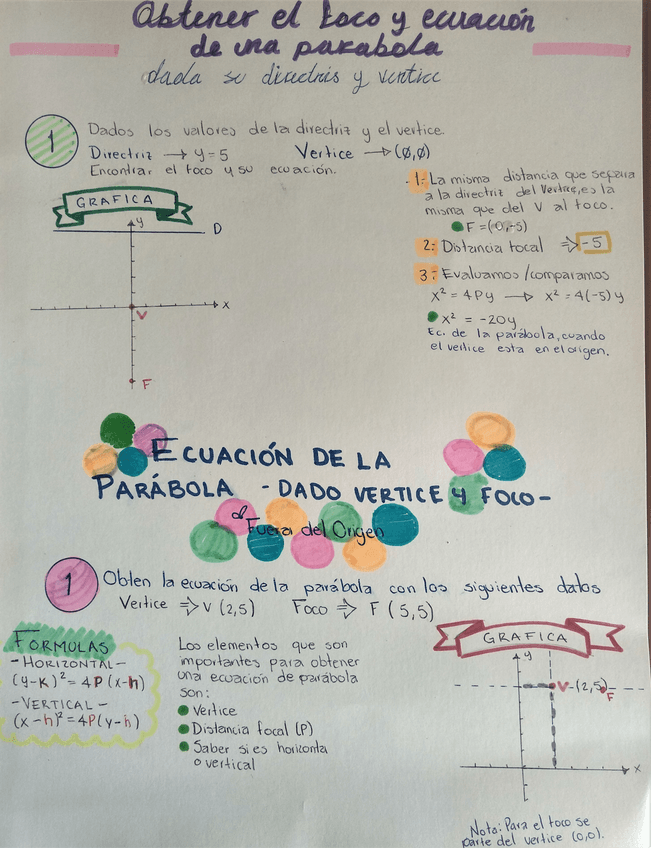 Obtener el foco y ecuación
de una parabola
dada su directriz y vertice
1
Dados los valores de la directriz y el vertice.
Directriz → y=5 Vertice → (0,0)
Encontrar el foco y su ecuación.
GRAFICA
y
D
x
V
F
1: La misma distancia que separa
a la directriz del Vertice, es la
misma que del V al foco.
F = (0,-5)
2: Distancia focal ⇒ -5
3: Evaluamos /comparamos
x² = 4Py → x² = 4(-5)y
x² = -20y
Ec. de la parábola, cuando
el vertice esta en el origen.
ECUACIÓN DE LA
PARÁBOLA - DADO VERTICE Y FOCO-
Fuera del Origen
1
Obten la ecuación de la parábola con los siguientes datos
Vertice ⇒ V (2,5) Foco ⇒ F (5,5)
FORMULAS
-HORIZONTAL-
(y-K)² = 4P(x-h)
-VERTICAL-
(x-h)² = 4P(y-h)
Los elementos que son
importantes para obtener
una ecuación de parábola
son:
Vertice
Distancia focal (P)
Saber si es horizonta
o vertical
GRAFICA
y
V-(2,5)
F
x
Nota: Para el foco se
parte del vertice (0,0).